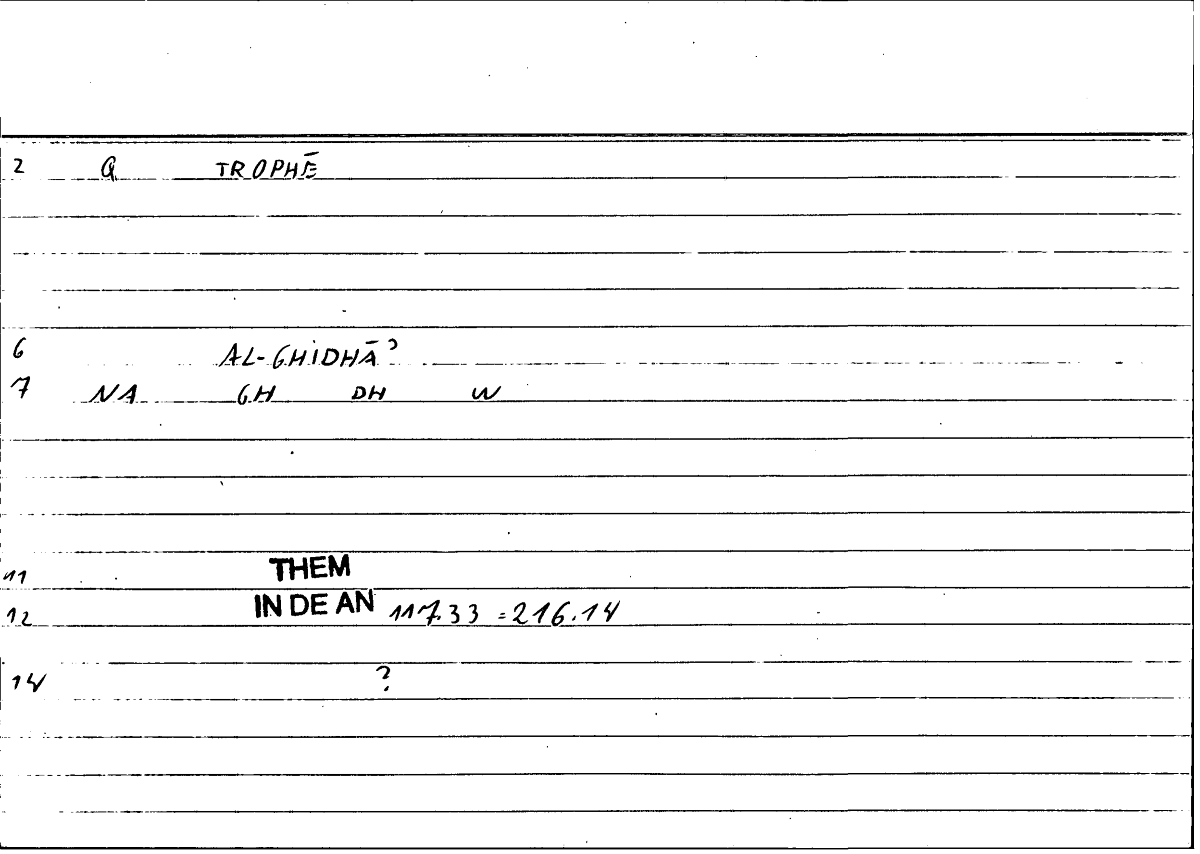 2 Q TROPHĒ
6 AL-GHIDHĀʾ
7 NA GH DH W
11 THEM
12 IN DE AN 117.33 = 216.14
14 ?